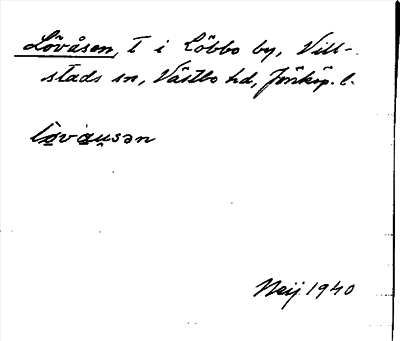 Lövåsen, T i Löbbo by, Vill-
stads sn, Västbo hd, Jönköp. l.
lövausən
Neij 1940